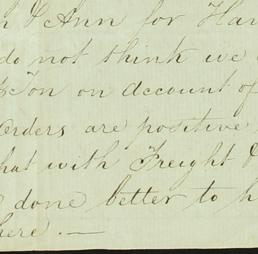 & Ann for Har
do not think we
Ton on account of
Orders are positive
hat with Freight &
done better to h
here. —